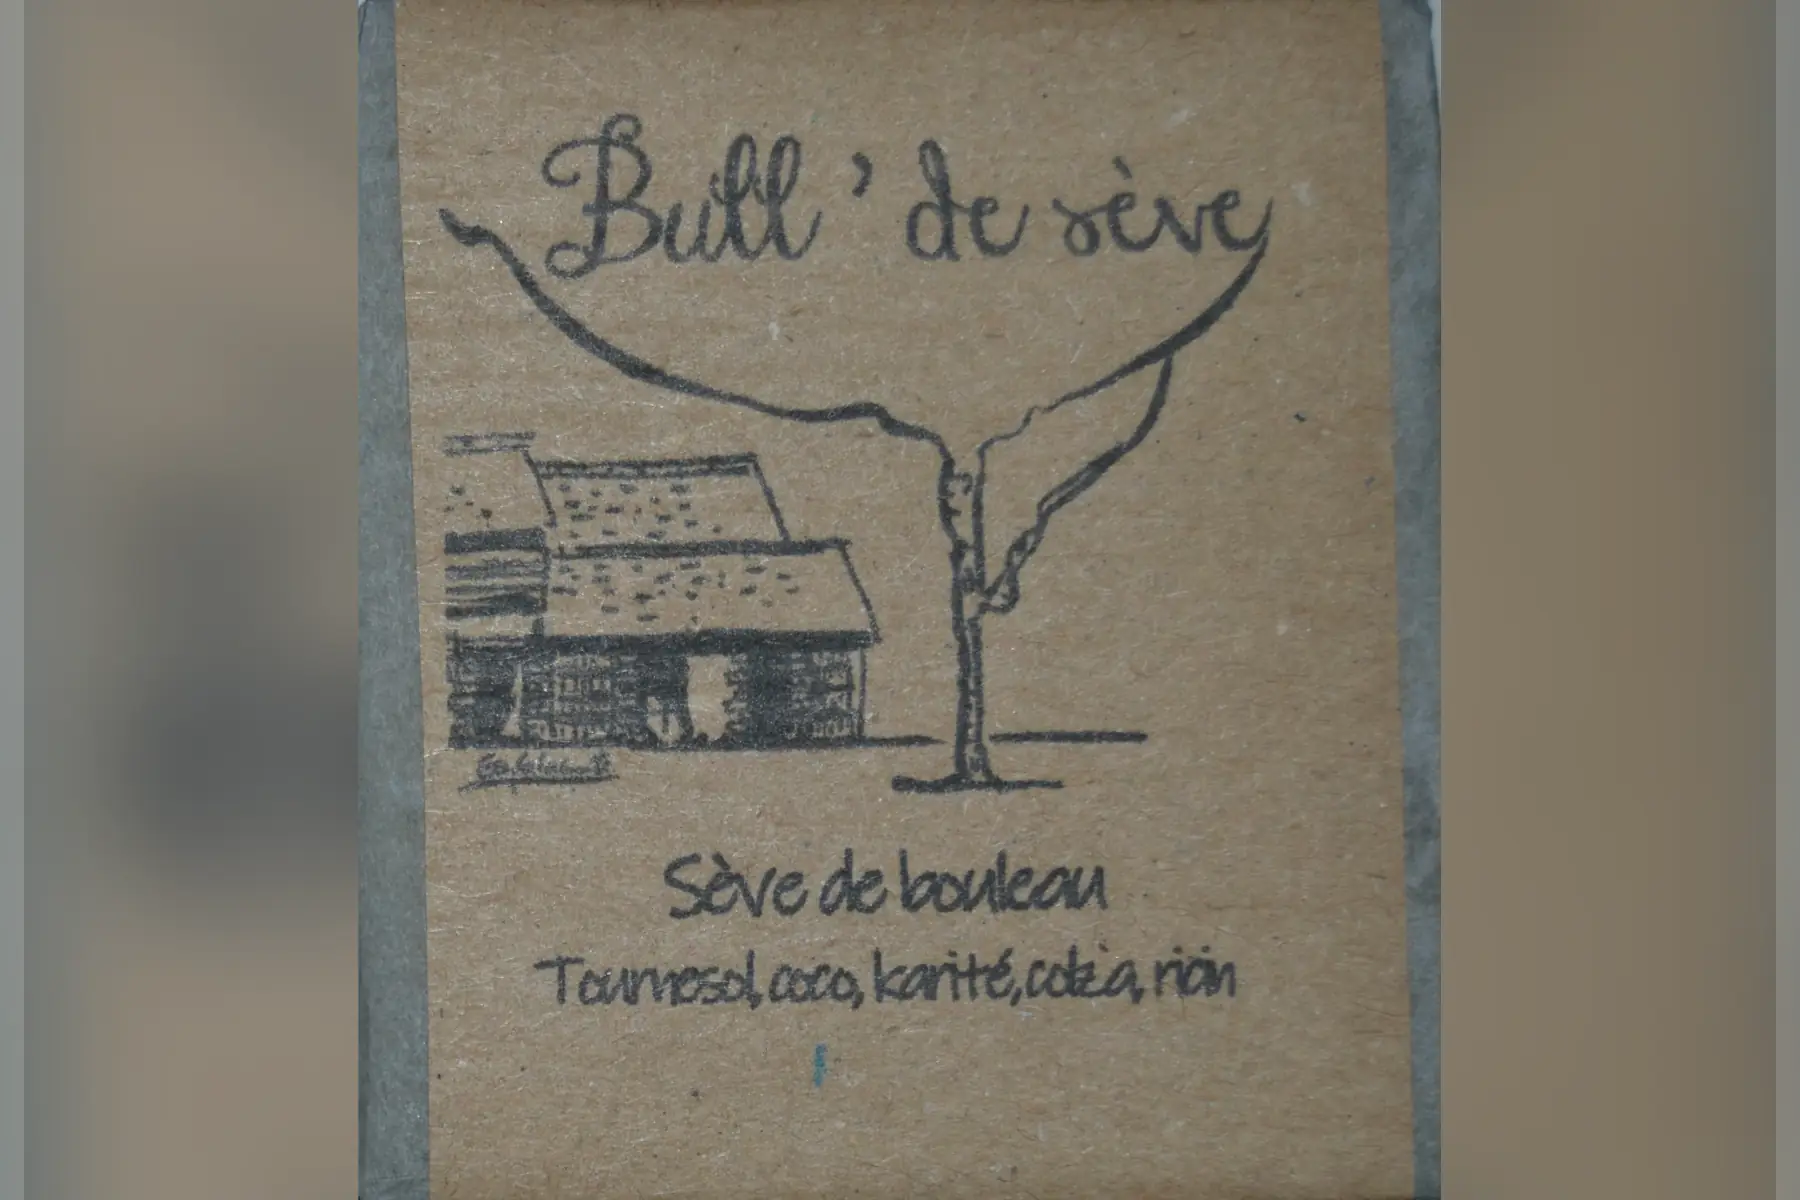 Bull' de sève
Sève de bouleau
Tournesol, coco, karité, colza, ricin